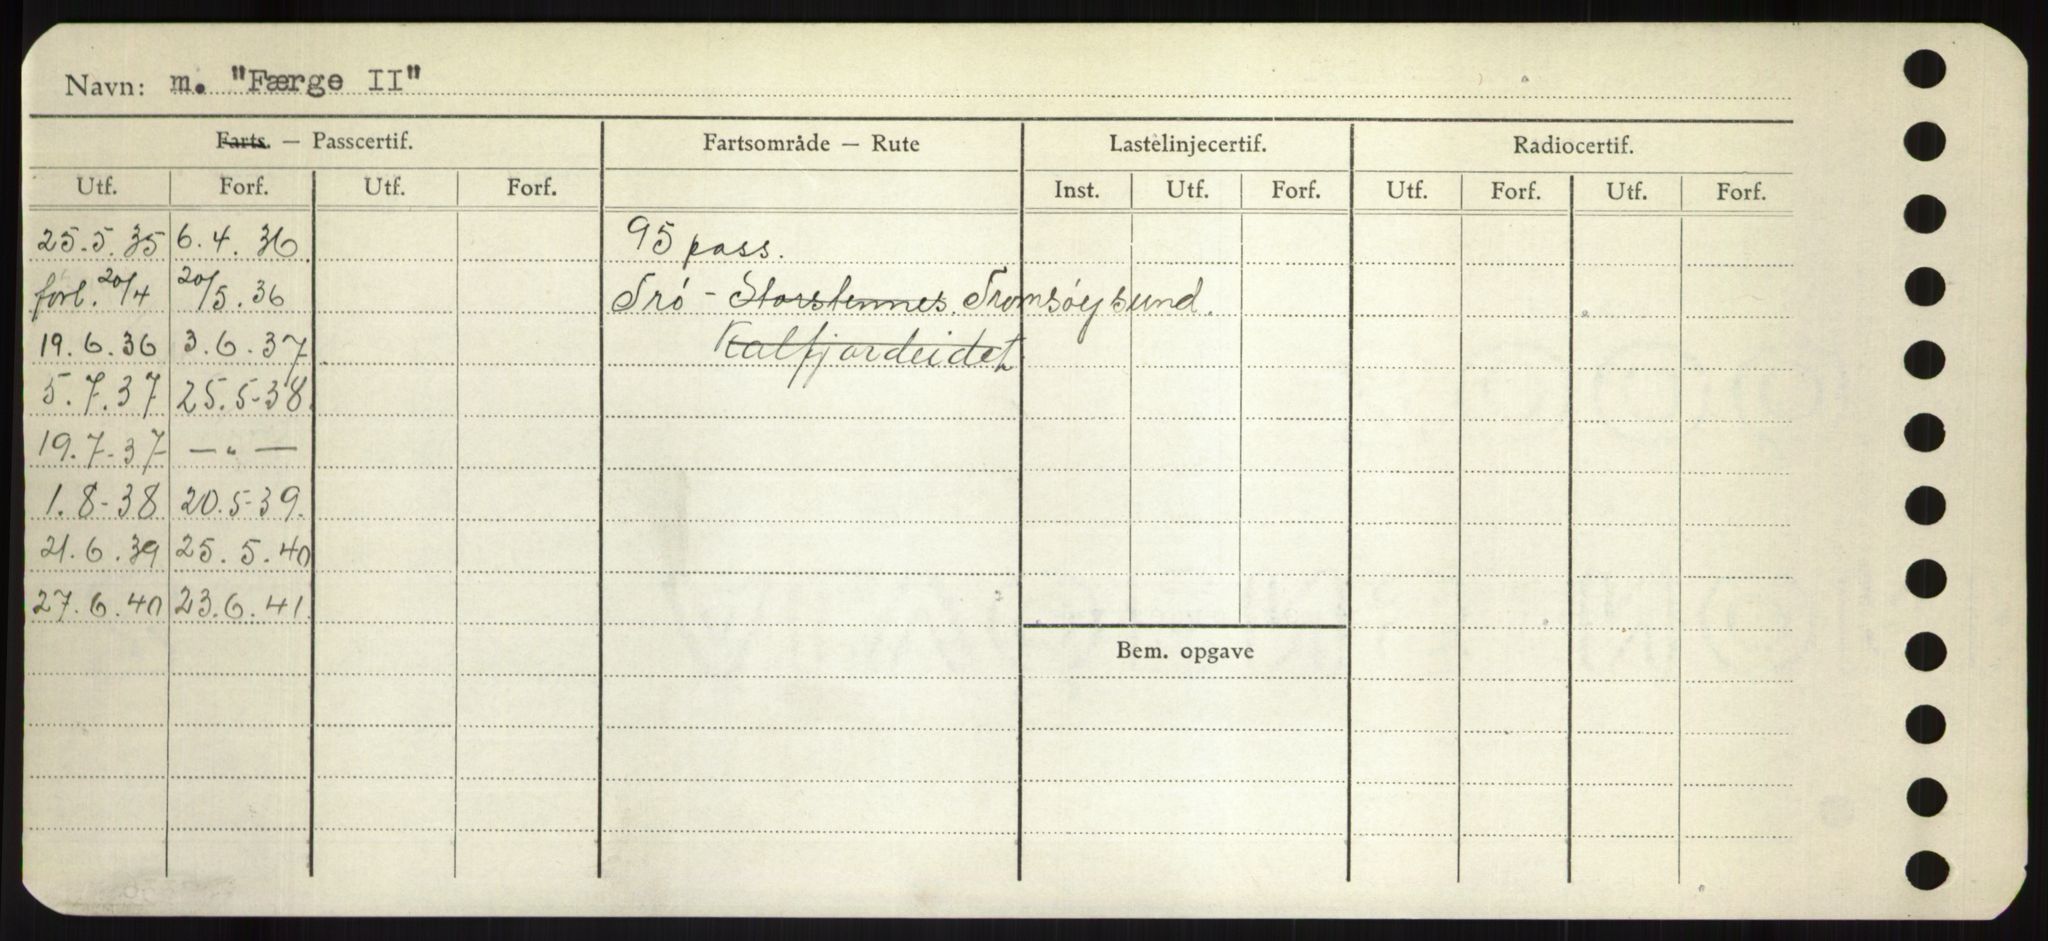 Navn: m. "Færge II"
Farts. — Passcertif. Fartsområde — Rute Lastelinjecertif. Radiocertif.
Utf. Forf. Utf. Forf. Inst. Utf. Forf. Utf. Forf. Utf. Forf.
25.5.35 6.4.36 95 pass.
forl. 20/4 20/5.36 Trö - Storstennes. Tromsöysund.
19.6.36 3.6.37 Kalfjordeidet
5.7.37 25.5-38.
19.7-37 — " —
1.8-38 20.5-39.
21.6.39 25.5.40
27.6.40 23.6.41.
Bem. opgave